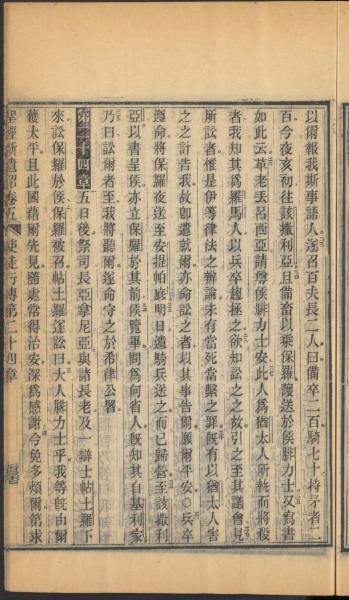 以爾報我斯事語人遂召百夫長二人曰備卒二百騎七十持矛者二
百今夜亥初往該撒利亞且備畜以乘保羅護送於侯腓力士又寫書
如此云革老丟呂西亞請磐侯腓力士安此人為猶太人所執而將殺
者我知其為羅馬人以兵卒趨拯之欲知訟之之故引之至其議會見
所訟者惟是伊等律法之辨論未有當死當繫之罪旣有以猶太人害
之之計告我故卽遣就爾亦命訟之者以其事告爾願爾平安○兵卒
遵命將保羅夜送至安提帕底明日遣騎兵送之而已歸營至該撒利
亞以書呈侯亦立保羅於其前侯覽畢問為何省人旣知其自基利家
乃曰訟爾者至我將聽爾遂命守之於希律公署
第二十四章五日後祭司長亞拿尼亞與諸長老及一辯士帖土羅下
來訟保羅於侯保羅被召帖土羅遂訟曰大人腓力士乎我等旣由爾
獲太平且此國藉爾先見隨處常得治安深為感謝今免多煩爾第求
聖經新遺詔卷五 使徒行傳第二十四章